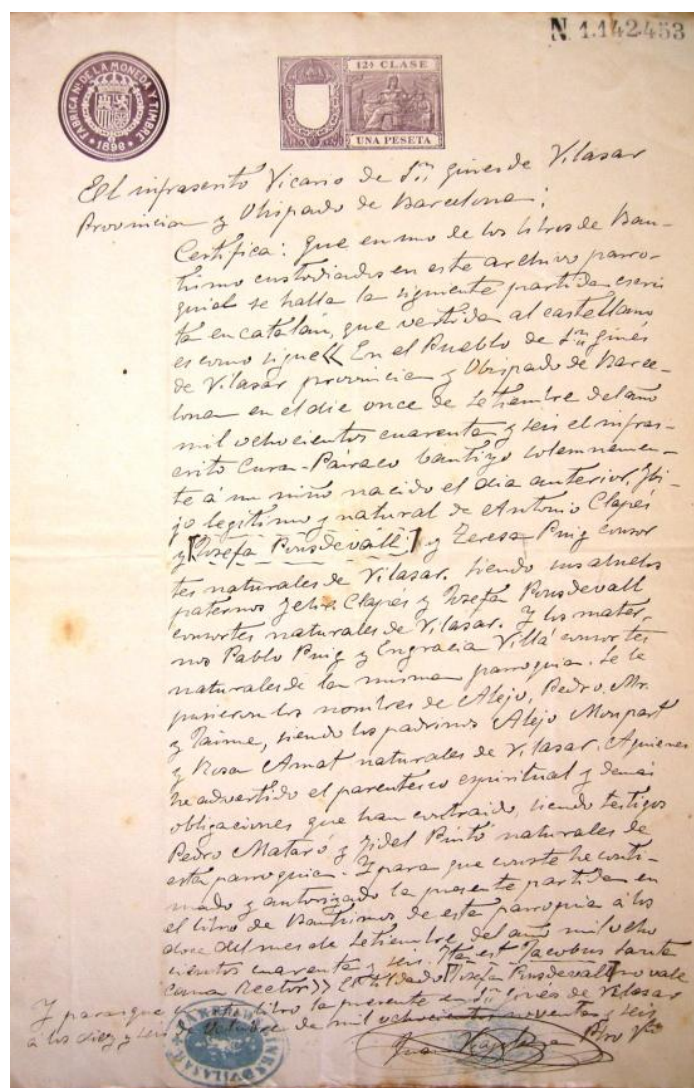 N. 1.142.453
FABRICA Nal. DE LA MONEDA Y TIMBRE
1896
12ª CLASE
UNA PESETA
El infrascrito Vicario de Sn. Gines de Vilasar
Provincia y Obispado de Barcelona;
Certifica: que en uno de los libros de Bau-
tismo custodiados en este archivo parro-
quial se halla la siguiente partida escri
ta en catalán, que vertida al castellano
es como sigue << En el Pueblo de Sn. Ginés
de Vilasar provincia y Obispado de Barce-
lona en el dia once de Setiembre del año
mil ochocientos cuarenta y seis el infras-
crito Cura-Párroco bautizo solemnemen-
te á un niño nacido el dia anterior, hi-
jo legitimo y natural de Antonio Clapés
y [Josefa Ponsdevall] y Teresa Puig consor
tes naturales de Vilasar. Siendo sus abuelos
paternos Clapés y Josefa Ponsdevall
consortes naturales de Vilasar. Y los mater-
nos Pablo Puig y Engracia Villá consortes
naturales de la misma parroquia. Se le
pusieron los nombres de Alejo, Pedro,
y Jaime, siendo los padrinos Alejo Monpart
y Rosa Amat naturales de Vilasar. A quienes
he advertido el parentesco espiritual y demás
obligaciones que han contraido, siendo testigos
Pedro Mataró y Fidel Pintó naturales de
esta parroquia. Y para que conste he conti-
nuado y autorizado la presente partida en
el libro de Bautismos de esta parroquia á los
doce del mes de Setiembre del año mil ocho
cientos cuarenta y seis. Ita est Jacobus Santa
coma Rector >> El tildado [Josefa Ponsdevall] no vale
Y para que libro la presente en Sn. Ginés de Vilasar
á los diez y seis de Octubre de mil ochocientos noventa y seis
Juan Pbro Vio